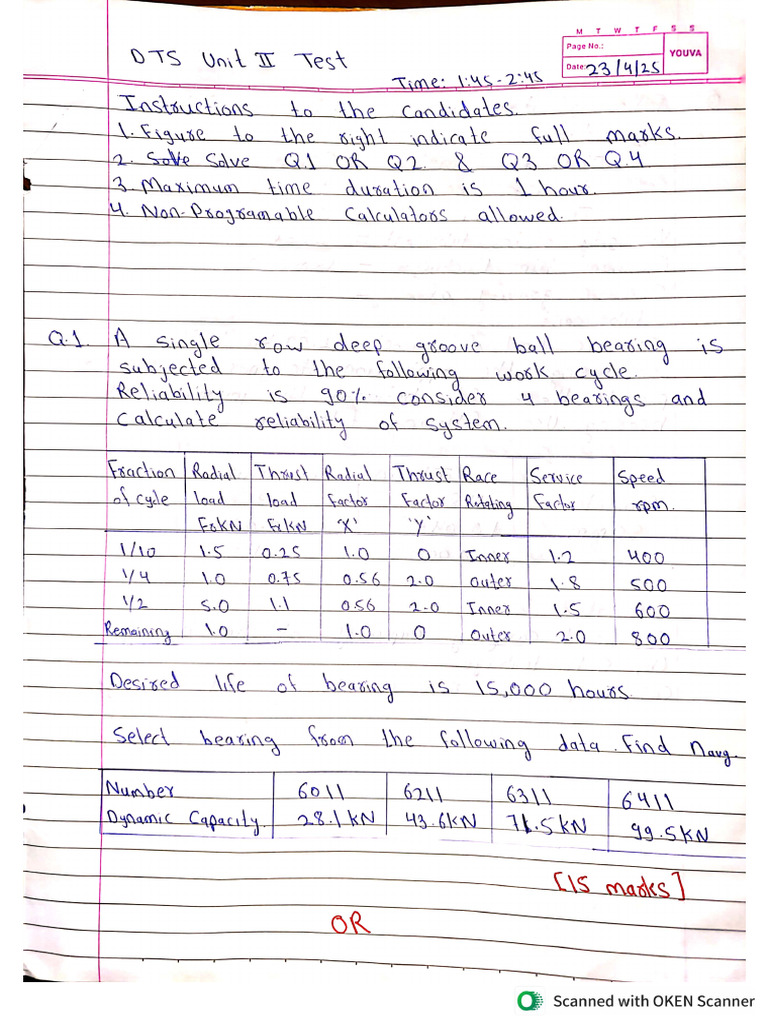 M T W T F S S
Page No.:
YOUVA
Date: 23/4/25
DTS Unit II Test
Time: 1:45-2:45
Instructions to the Candidates.
1. Figure to the right indicate full marks.
2. Solve Solve Q.1 OR Q.2 & Q3 OR Q.4
3. Maximum time duration is 1 hour.
4. Non-Programable Calculators allowed.
Q.1. A single row deep groove ball bearing is
subjected to the following work cycle.
Reliability is 90% consider 4 bearings and
calculate reliability of system.
Fraction Radial Thrust Radial Thrust Race Service Speed
of cycle load load Factor Factor Rotating Factor rpm.
FrKN FtKN 'X' 'Y'
1/10 1.5 0.25 1.0 0 Inner 1.2 400
1/4 1.0 0.75 0.56 2.0 outer 1.8 500
1/2 5.0 1.1 0.56 2.0 Inner 1.5 600
Remaining 1.0 - 1.0 0 outer 2.0 800
Desired life of bearing is 15,000 hours.
Select bearing from the following data. Find navg.
Number 6011 6211 6311 6411
Dynamic Capacity. 28.1KN 43.6KN 71.5KN 99.5KN
[15 marks]
OR
Scanned with OKEN Scanner